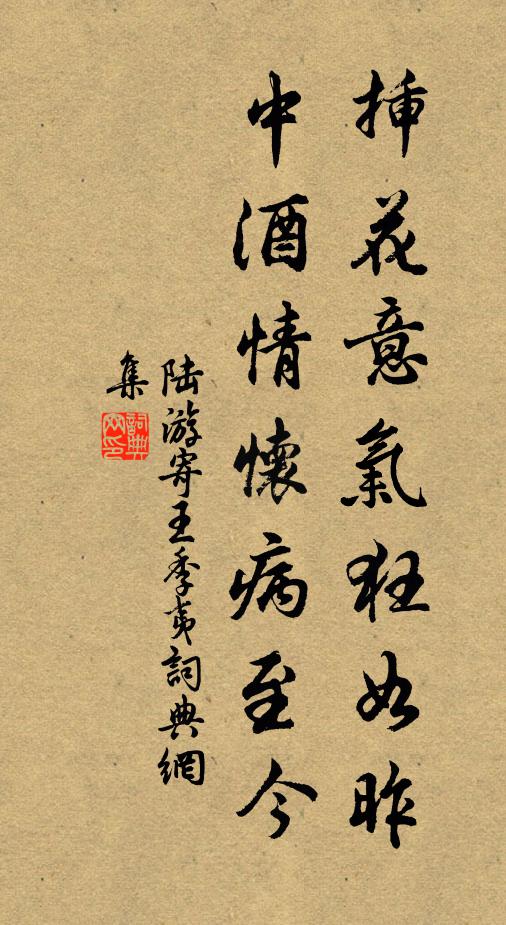 挿花意氣狂如昨
中酒情懷病至今
陆游寄王季夷詞典網
集
詞典
网印